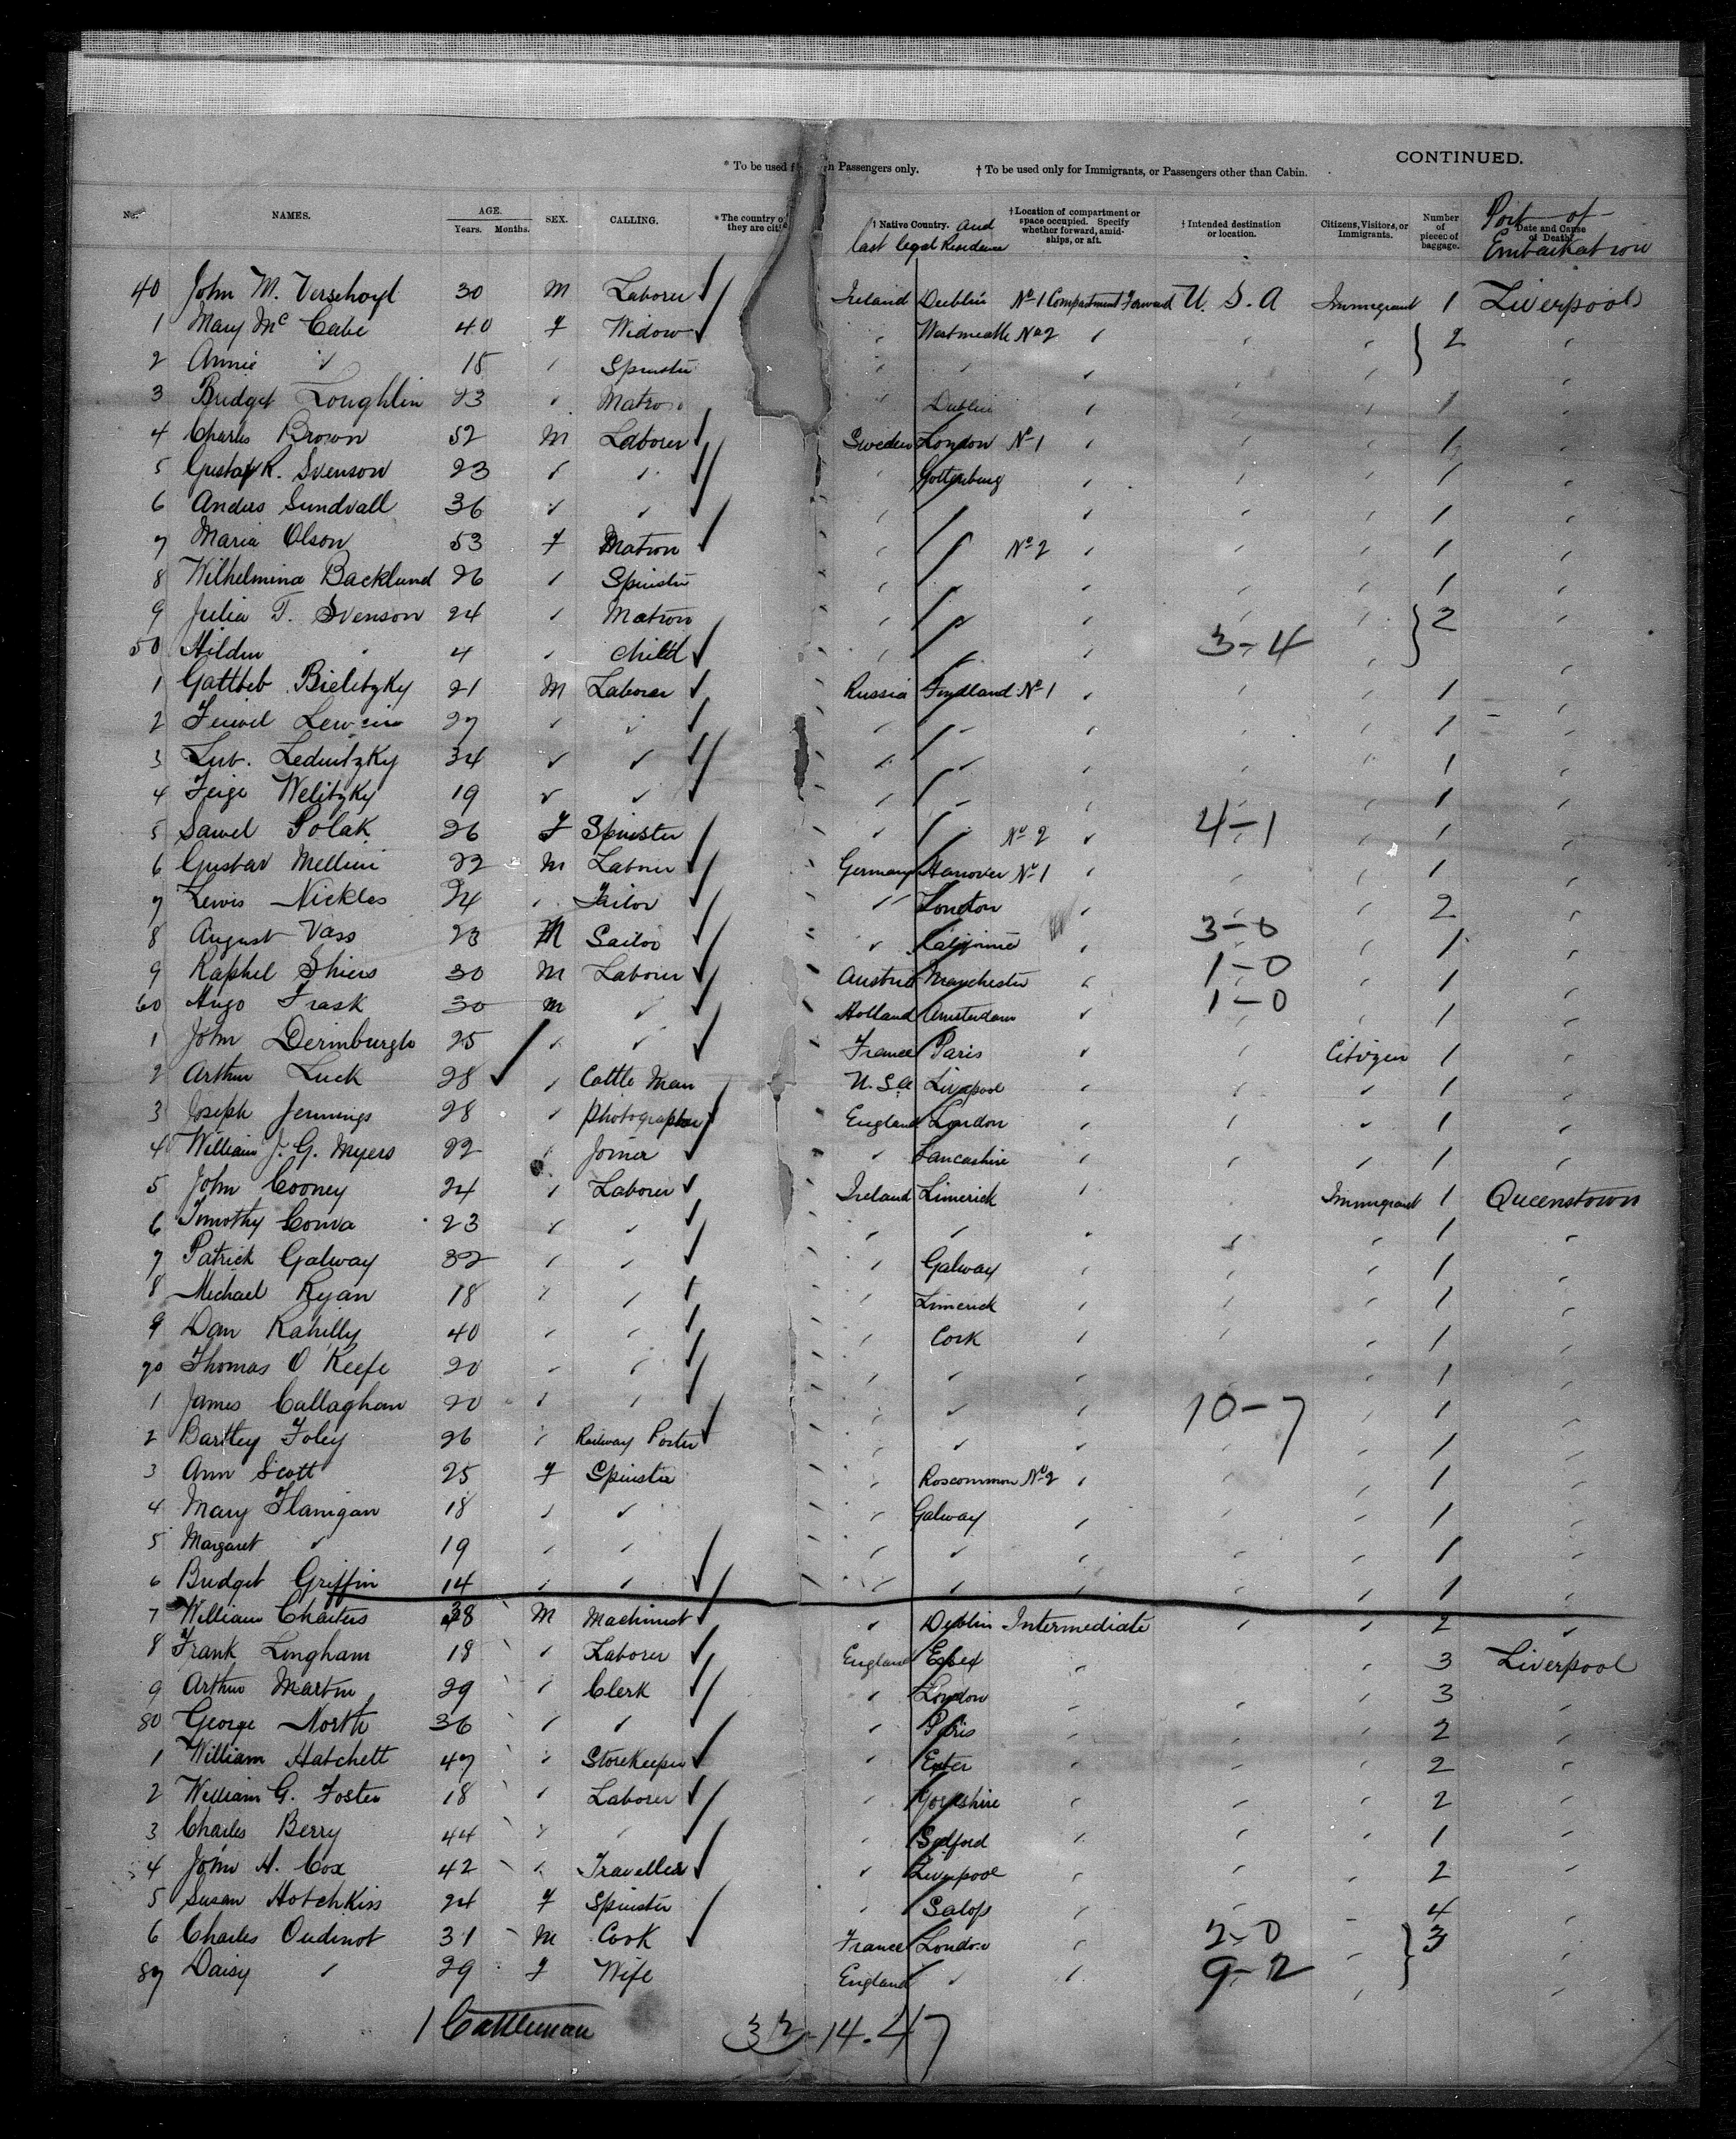 CONTINUED.
* To be used f n Passengers only. † To be used only for Immigrants, or Passengers other than Cabin.
No. NAMES. AGE. Years. Months. SEX. CALLING. * The country of they are citi † Native Country. and last legal Residence † Location of compartment or space occupied. Specify whether forward, amidships, or aft. † Intended destination or location. Citizens, Visitors, or Immigrants. Number of pieces of baggage. Date and Cause of Death. Port of Embarkation
40 John M. Verschoyl 30 M Laborer Ireland Dublin No 1 Compartment Forward U. S. A Immigrant 1 Liverpool
1 Mary Mc Cabe 40 F Widow " Westmeath No 2 " " " 2 "
2 Annie " 15 " Spinster " " " " " "
3 Bridget Loughlin 23 " Matron " Dublin " " " 1 "
4 Charles Brown 52 M Laborer Sweden London No 1 " " " 1 "
5 Gustaf R. Svenson 23 " " " Gottenburg " " " 1 "
6 Anders Sundvall 36 " " " " " " " 1 "
7 Maria Olson 53 F Matron " " No 2 " " " 1 "
8 Wilhelmina Backlund 26 " Spinster " " " " " 1 "
9 Julia T. Svenson 24 " Matron " " " " " 2 "
50 Hilden " 4 " Child " " " 3-4 " "
1 Gattleb Bielitzky 21 M Laborer Russia No 1 " " " 1 "
2 27 " " " " " " " 1 "
3 Lednitzky 34 " " " " " " " 1 "
4 Feige Welitzky 19 " " " " " " " 1 "
5 Sawel Polak 26 F Spinster " " No 2 " 4-1 " 1 "
6 Gustav Mellini 22 M Laborer Germany Hanover No 1 " " " 1 "
7 Lewis Nickles 24 " Tailor " London " " " 2 "
8 August Vass 23 M Sailor " " 3-0 " 1 "
9 Raphel Shiers 30 M Laborer Austria Manchester " 1-0 " 1 "
60 Hugo Frask 30 M " Holland Amsterdam " 1-0 " 1 "
1 John Derinburgh 25 " " France Paris " " Citizen 1 "
2 Arthur Luck 28 " Cattle Man U. S. A Liverpool " " " 1 "
3 Joseph Jennings 28 " Photographer England London " " " 1 "
4 William J. G. Myers 22 " Joiner " Lancashire " " " 1 "
5 John Cooney 24 " Laborer Ireland Limerick " Immigrant 1 Queenstown
6 Timothy 23 " " " " " " " 1 "
7 Patrick Galway 32 " " " Galway " " " 1 "
8 Michael Ryan 18 " " " Limerick " " " 1 "
9 Dan Rahilly 40 " " " Cork " " " 1 "
70 Thomas O'Keefe 20 " " " " " " " 1 "
1 James Callaghan 20 " " " " " 10-7 " 1 "
2 Bartley Foley 26 " Railway Porter " " " " " 1 "
3 Ann Scott 25 F Spinster " Roscommon No 2 " " " 1 "
4 Mary Flanigan 18 " " " Galway " " " 1 "
5 Margaret " 19 " " " " " " " 1 "
6 Bridget Griffin 14 " " " " " " " 1 "
7 William Charters 38 M Machinist " Dublin Intermediate " " 2 "
8 Frank Lingham 18 " Laborer England Essex " " " 3 Liverpool
9 Arthur Martin 29 " Clerk " London " " " 3 "
80 George North 36 " " " Paris " " " 2 "
1 William Hatchett 47 " Storekeeper " Exeter " " " 2 "
2 William G. Foster 18 " Laborer " Yorkshire " " " 2 "
3 Charles Berry 44 " " " Salford " " " 1 "
4 John H. Cox 42 " Traveller " Liverpool " " " 2 "
5 Susan Hotchkiss 24 F Spinster " Salop " " " 4 "
6 Charles Oudinot 31 M Cook France London " 2-0 " 3 "
87 Daisy " 29 F Wife England " " 9-2 " "
1 Cattleman 33-14.47